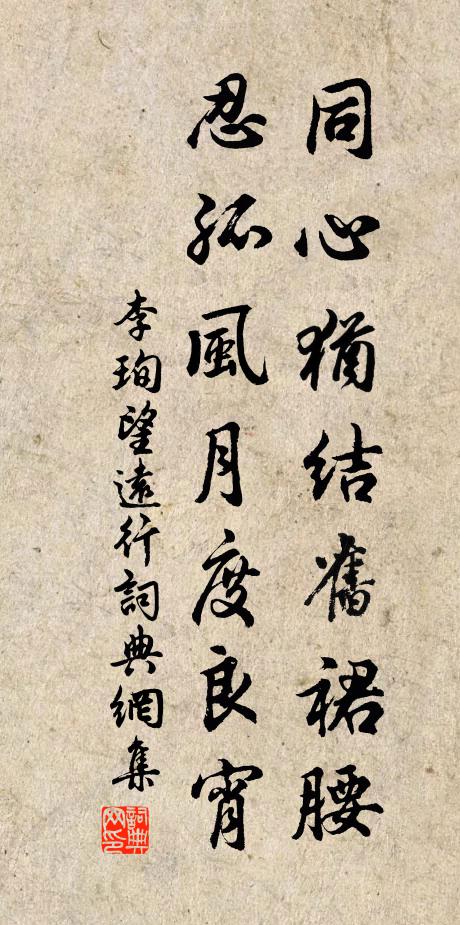 同心猶結舊裙腰
忍孤風月度良宵
李珣望遠行詞典網集
詞典網印